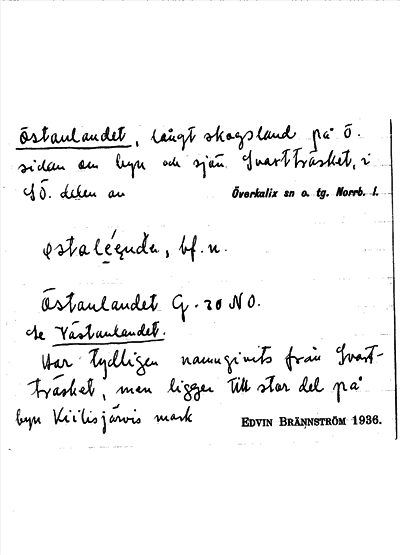 Östanlandet, långt skogsland på ö.
sidan om byn och sjön Svartträsket, i
SÖ. delen av Överkalix sn o. tg. Norrb. l.
bf. n.
Östanlandet G. 20 NO.
se Västanlandet.
Har tydligen namngivits från Svart-
träsket, men ligger till stor del på
byn Kiilisjärvis mark EDVIN BRÄNNSTRÖM 1936.